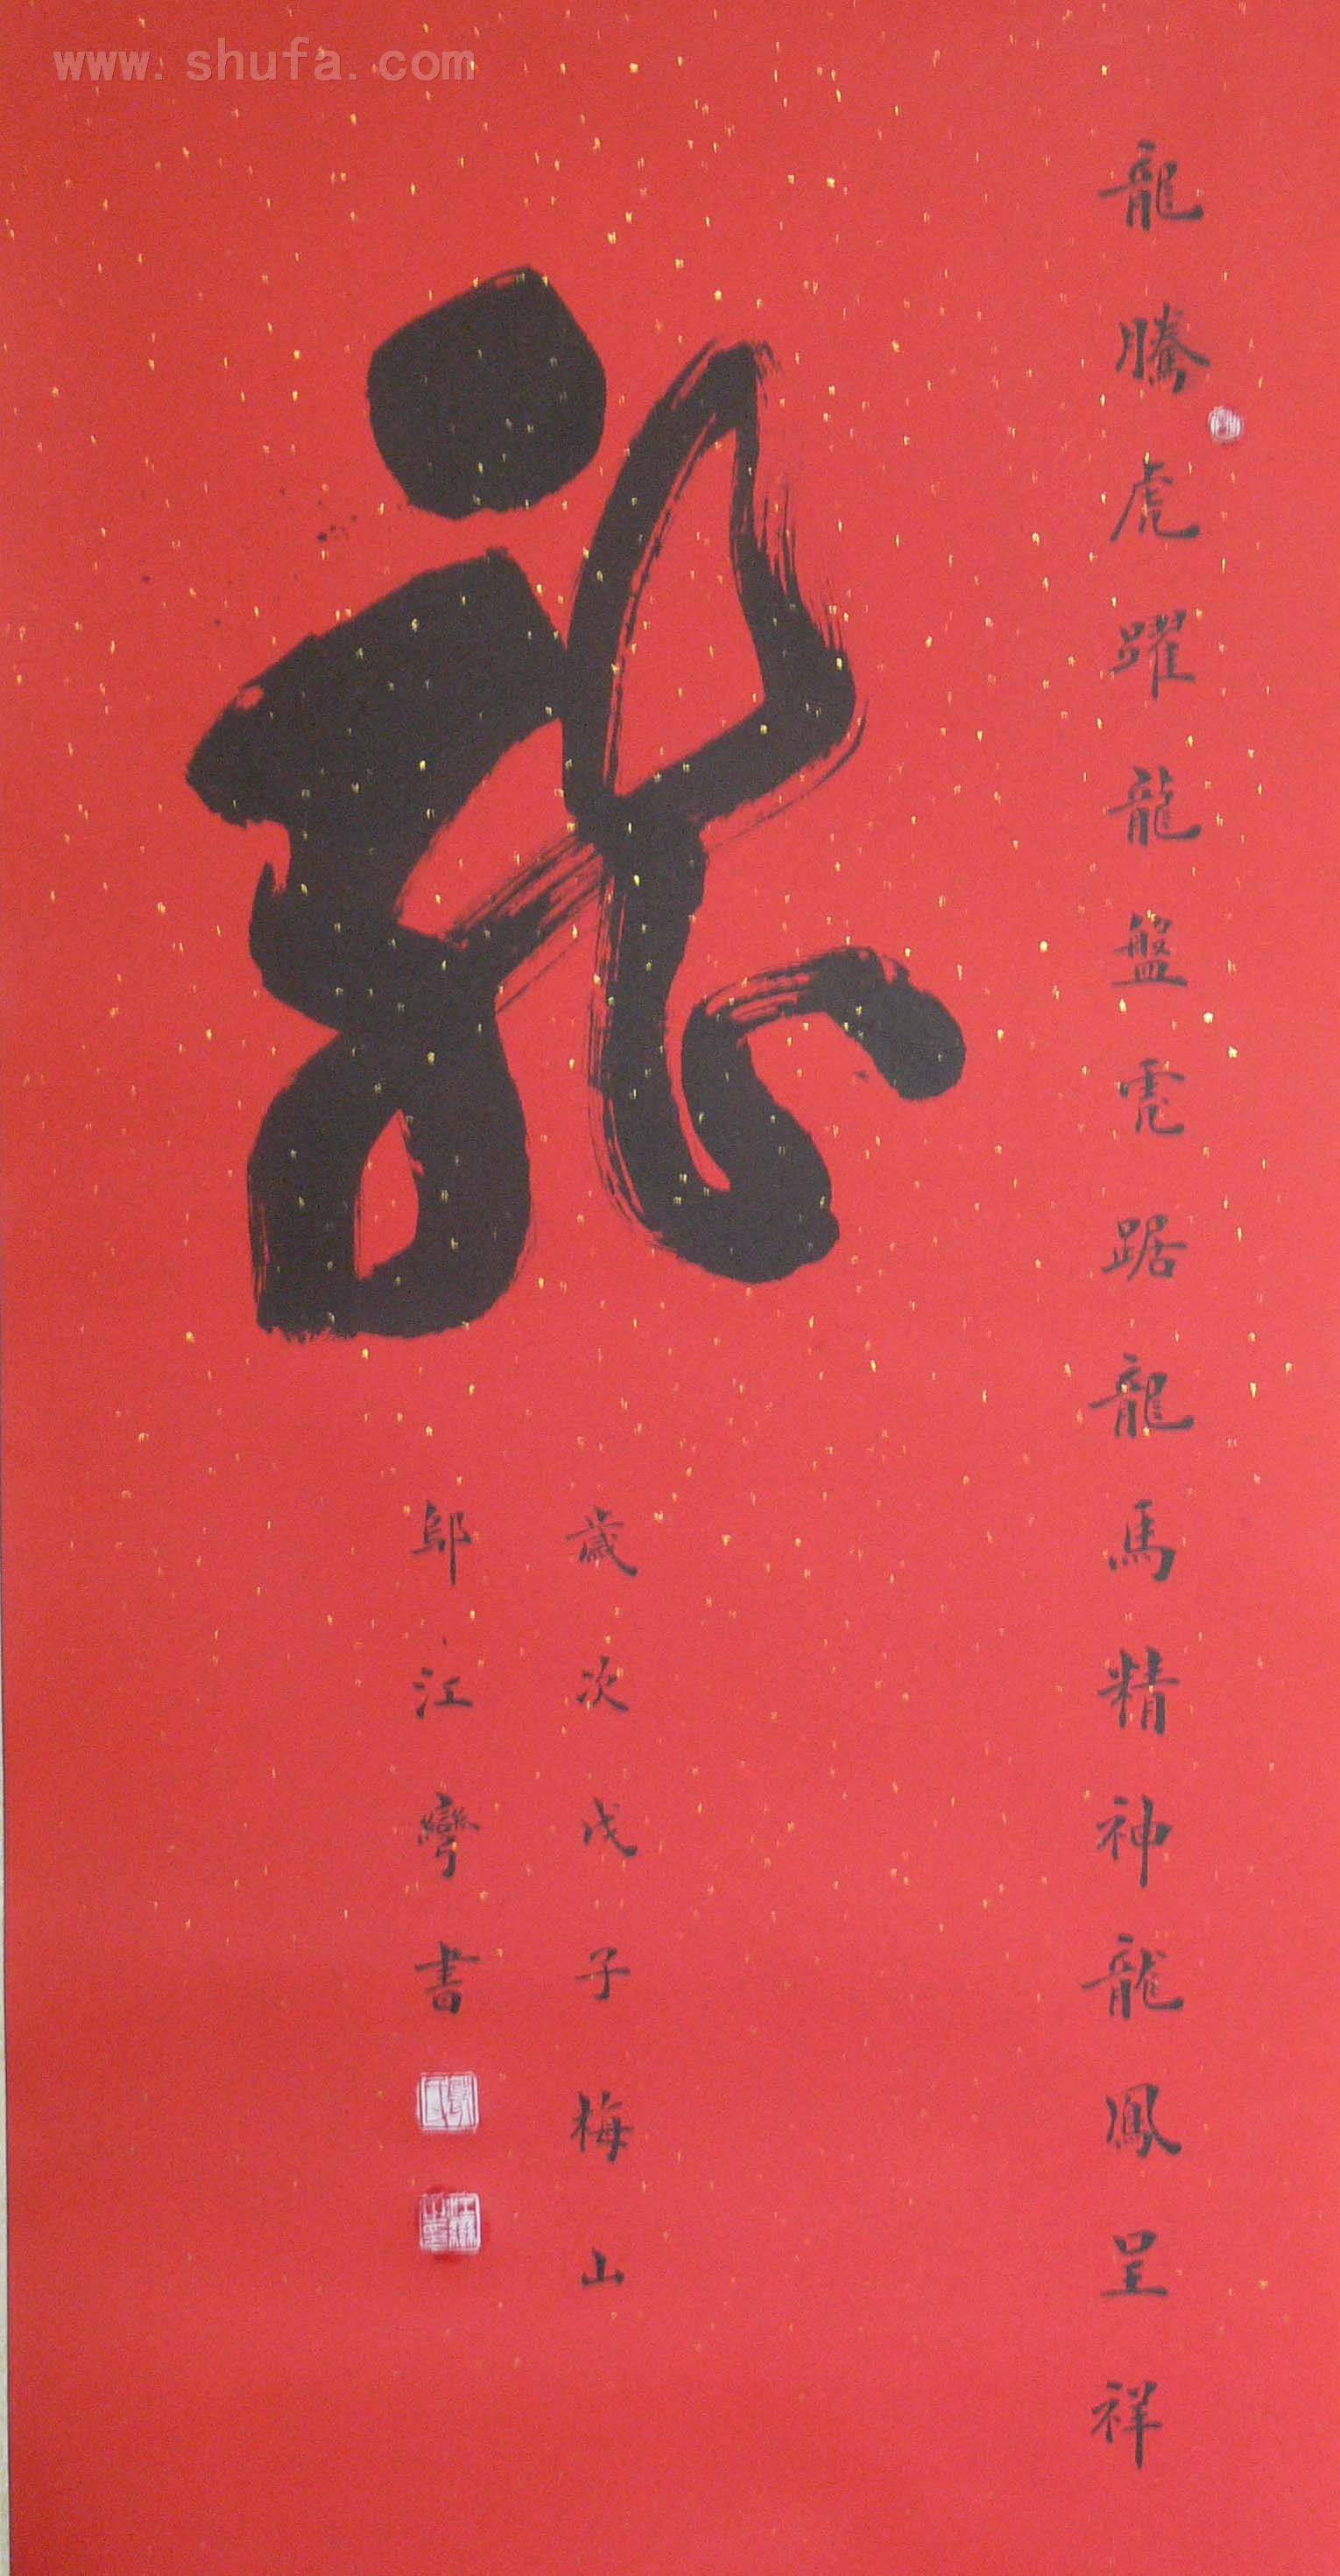 www.shufa.com
龍騰虎躍龍盤虎踞龍馬精神龍鳳呈祥
龍
歲次戊子梅山
鄔江彎書